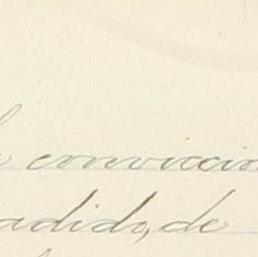 conviccio
adido, de